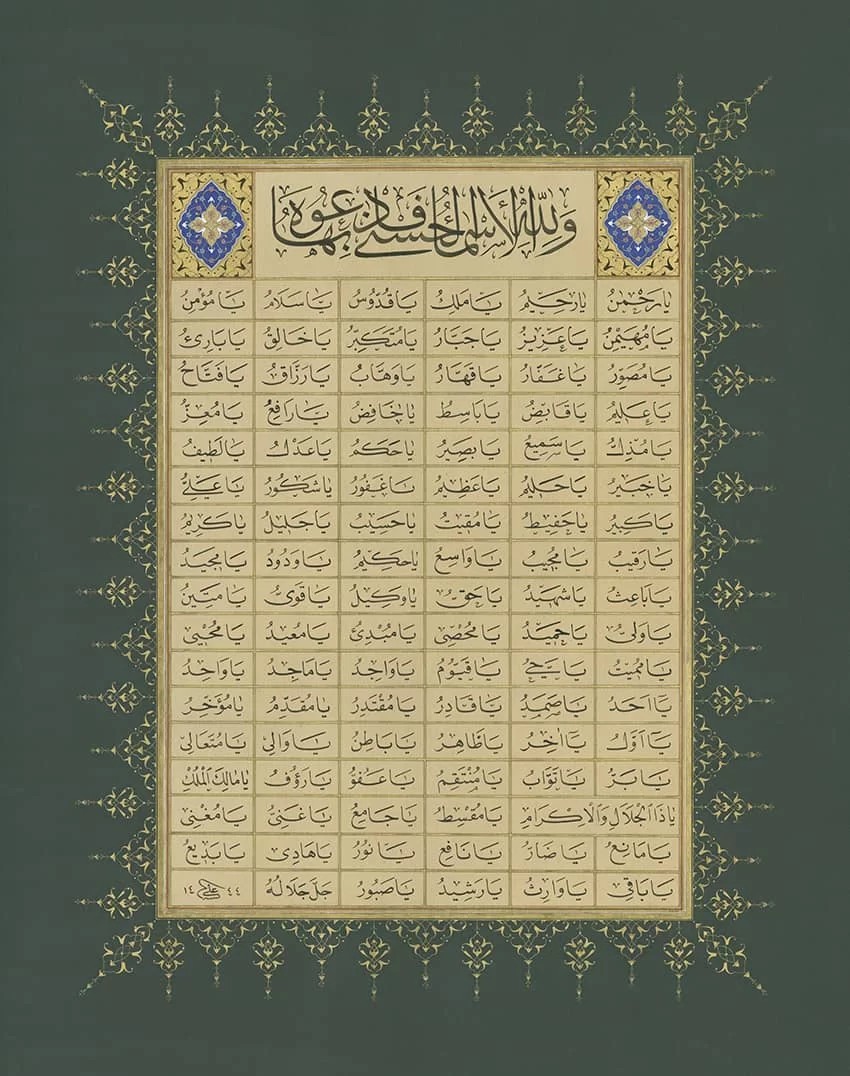 وَلِلّٰهِ الْاَسْمَاءُ الْحُسْنٰى فَادْعُوهُ بِهَا
يَا رَحْمٰنُ يَا رَحِيمُ يَا مَلِكُ يَا قُدُّوسُ يَا سَلَامُ يَا مُؤْمِنُ
يَا مُهَيْمِنُ يَا عَزِيزُ يَا جَبَّارُ يَا مُتَكَبِّرُ يَا خَالِقُ يَا بَارِئُ
يَا مُصَوِّرُ يَا غَفَّارُ يَا قَهَّارُ يَا وَهَّابُ يَا رَزَّاقُ يَا فَتَّاحُ
يَا عَلِيمُ يَا قَابِضُ يَا بَاسِطُ يَا خَافِضُ يَا رَافِعُ يَا مُعِزُّ
يَا مُذِلُّ يَا سَمِيعُ يَا بَصِيرُ يَا حَكَمُ يَا عَدْلُ يَا لَطِيفُ
يَا خَبِيرُ يَا حَلِيمُ يَا عَظِيمُ يَا غَفُورُ يَا شَكُورُ يَا عَلِيُّ
يَا كَبِيرُ يَا حَفِيظُ يَا مُقِيتُ يَا حَسِيبُ يَا جَلِيلُ يَا كَرِيمُ
يَا رَقِيبُ يَا مُجِيبُ يَا وَاسِعُ يَا حَكِيمُ يَا وَدُودُ يَا مَجِيدُ
يَا بَاعِثُ يَا شَهِيدُ يَا حَقُّ يَا وَكِيلُ يَا قَوِيُّ يَا مَتِينُ
يَا وَلِيُّ يَا حَمِيدُ يَا مُحْصِى يَا مُبْدِئُ يَا مُعِيدُ يَا مُحْيِى
يَا مُمِيتُ يَا حَيُّ يَا قَيُّومُ يَا وَاجِدُ يَا مَاجِدُ يَا وَاحِدُ
يَا اَحَدُ يَا صَمَدُ يَا قَادِرُ يَا مُقْتَدِرُ يَا مُقَدِّمُ يَا مُؤَخِّرُ
يَا اَوَّلُ يَا اٰخِرُ يَا ظَاهِرُ يَا بَاطِنُ يَا وَالِى يَا مُتَعَالِى
يَا بَرُّ يَا تَوَّابُ يَا مُنْتَقِمُ يَا عَفُوُّ يَا رَؤُفُ يَا مَالِكَ الْمُلْكِ
يَا ذَا الْجَلَالِ وَالْاِكْرَامِ يَا مُقْسِطُ يَا جَامِعُ يَا غَنِىُّ يَا مُغْنِى
يَا مَانِعُ يَا ضَارُّ يَا نَافِعُ يَا نُورُ يَا هَادِى يَا بَدِيعُ
يَا بَاقِى يَا وَارِثُ يَا رَشِيدُ يَا صَبُورُ جَلَّ جَلَالُهُ ١٤ ٤٤